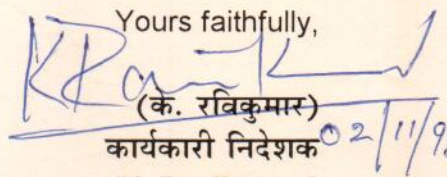 Yours faithfully,
(के. रविकुमार)
कार्यकारी निदेशक 02/11/9